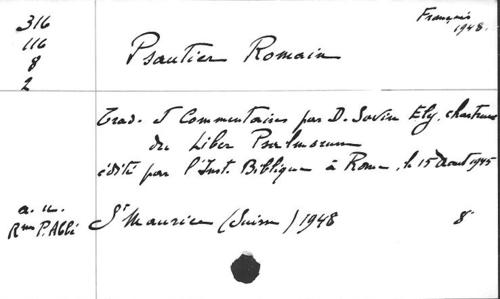 316
116
8
2
Français
1948.
Psautier Romain
Trad. & Commentaires par D. Savin Ely, chartreux
du Liber Psalmorum
édité par l'Inst. Biblique à Rome, le 15 Aout 1945
a. u.
Rme P. Abbé
St Maurice (Suisse) 1948
8°